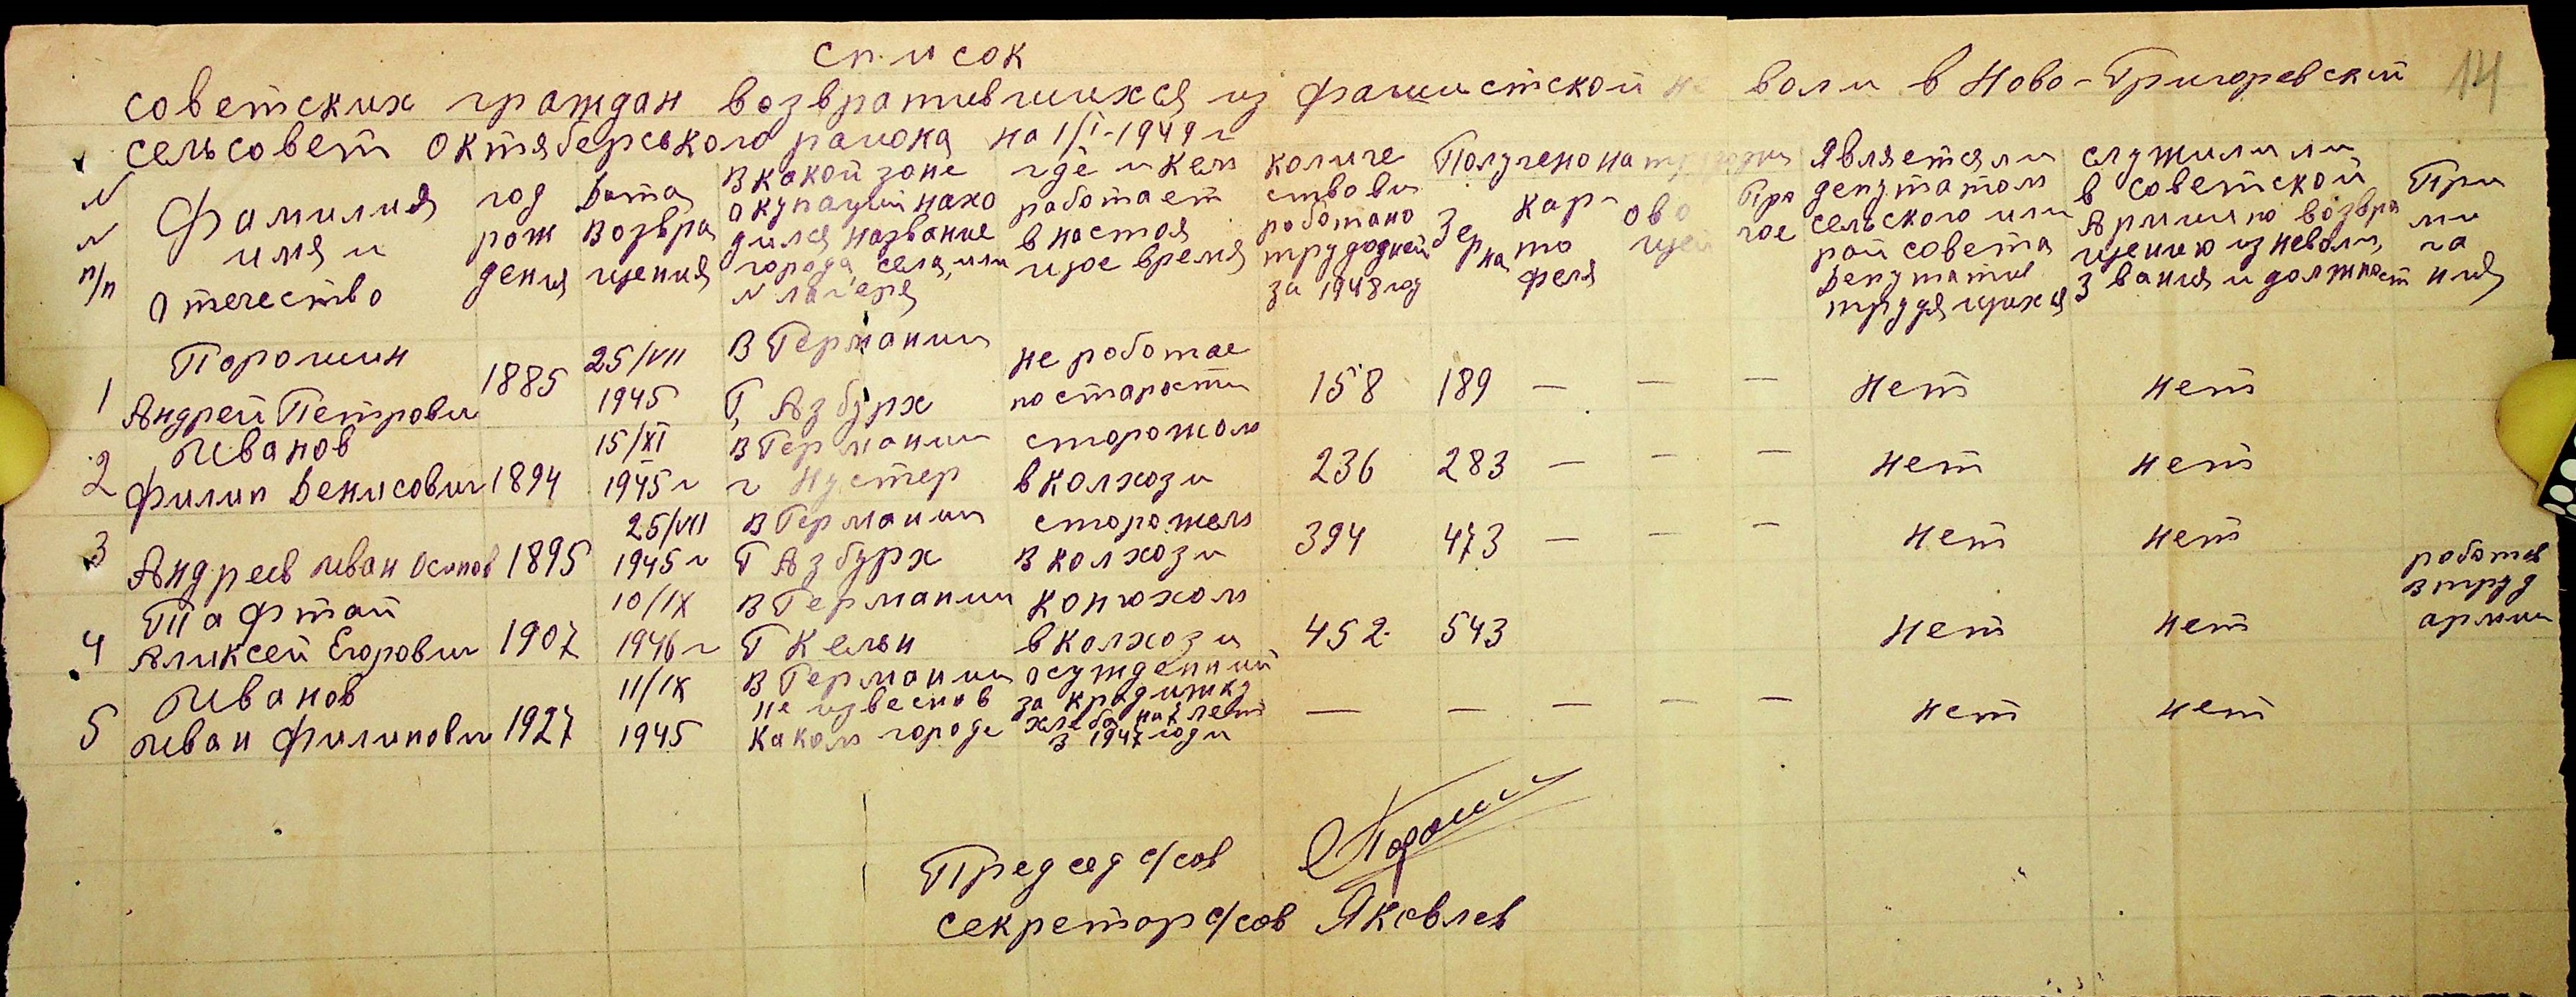 список
14
советских граждан возвратившихся из фашистской н воли в Ново-Григоревский
сельсовет Октяберського раиона на 1/I-1949 г
N N п/п Фамилия имя и Отечество
год рож дения
Дата возвра щения
В какой зоне окупации нахо дился название города, села, или N лагеря
где и кем работает в настоя щое время
количе ство ви работано трудодней за 1948 год
Получено на трудодни
Зер на
кар- то феля
ово щей
Про чое
Является ли депутатом сельского или рай совета Депутатив трудящихся
служил ли в советской Армии по возвра щению из неволи, звания и должност
При ми га ния
1 Порошин Андрей Петрови 1885 25/VII 1945 В Германии Г. Азбурх не работае по старости 158 189 — — — нет нет
2 Иванов Филип Денисович 1894 15/XI 1945 г В Германии г Нустер сторожом в колхози 236 283 — — — нет нет
3 Андреев Иван Осипов 1895 25/VII 1945 г В Германии Г Азбурх сторожем в колхози 394 473 — — — нет нет
4 Тафтай Аликсей Егорович 1907 10/IX 1946 г В Германии Г Кельн конюхом в колхози 452 543 нет нет работав в труд армии
5 Иванов Иван Филипович 1927 11/IX 1945 В Германии не извесно в каком городе осужденний за крадижку хлеба на 7 лет в 1947 годи — — — — — нет нет
Председ с/сов
секретор с/сов Яковлев